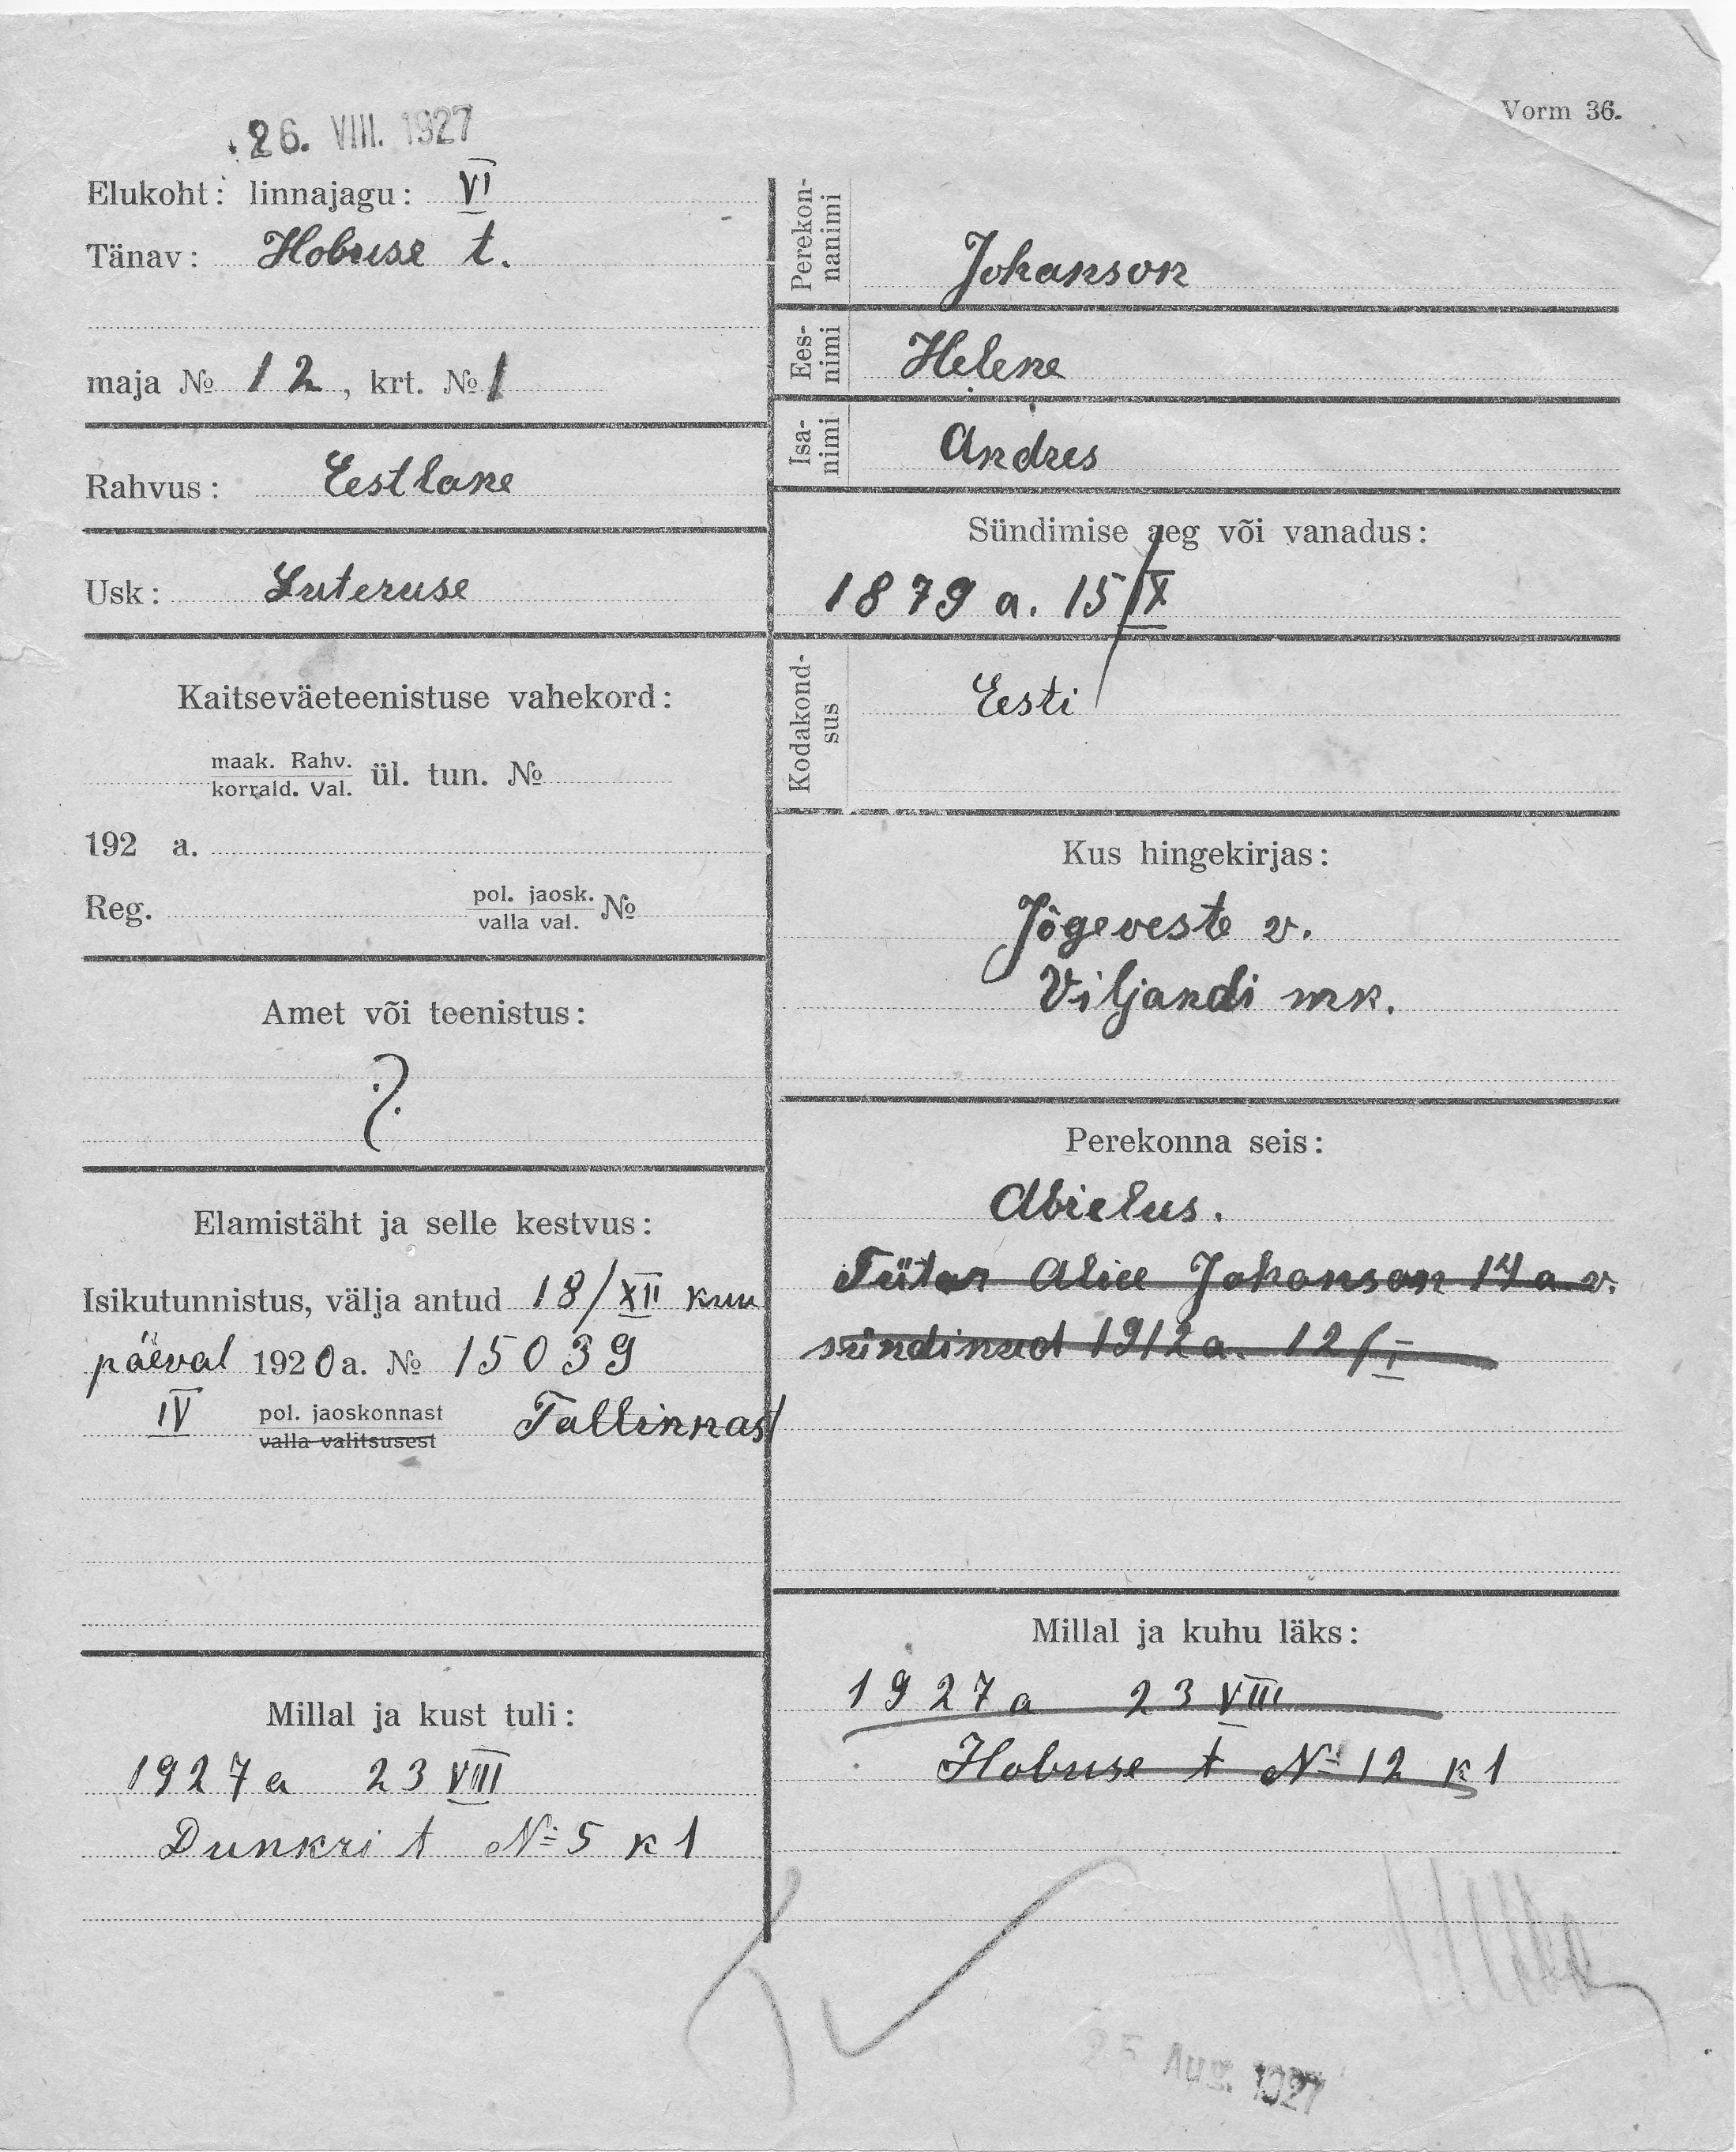 Vorm 36.
26. VIII. 1927
Elukoht: linnajagu: VI
Tänav: Hobuse t.
maja № 12, krt. № 1
Rahvus: Eestlane
Usk: Luteruse
Kaitseväeteenistuse vahekord:
maak. Rahv.
korrald. Val. ül. tun. №
192 a.
Reg. pol. jaosk.
valla val. №
Amet või teenistus:
?
Elamistäht ja selle kestvus:
Isikutunnistus, välja antud 18/XII kuu
päeval 1920 a. № 15039
IV pol. jaoskonnast Tallinnast
valla valitsusest
Millal ja kust tuli:
1927 a 23 VIII
Dunkri t № 5 k 1
Perekon-
nanimi
Johanson
Ees-
nimi
Helene
Isa-
nimi
Andres
Sündimise aeg või vanadus:
1879 a. 15/IX
Kodakond-
sus
Eesti
Kus hingekirjas:
Jõgeveste v.
Viljandi mk.
Perekonna seis:
Abielus.
Tütar Alice Johanson 14 a. v.
sündinud 1912 a. 12/I
Millal ja kuhu läks:
1927 a 23 VIII
Hobuse t № 12 k 1
25 Aug. 1927